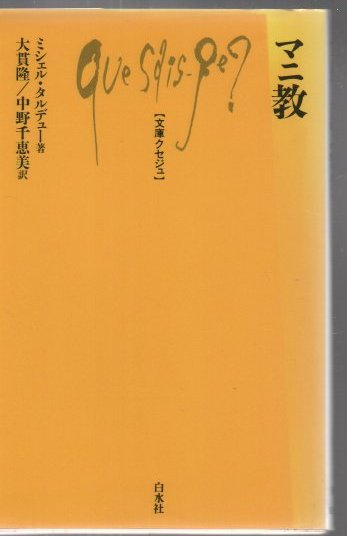 マニ教
Que sais-je?
【文庫クセジュ】
ミシェル・タルデュー著
大貫隆/中野千恵美訳
白水社